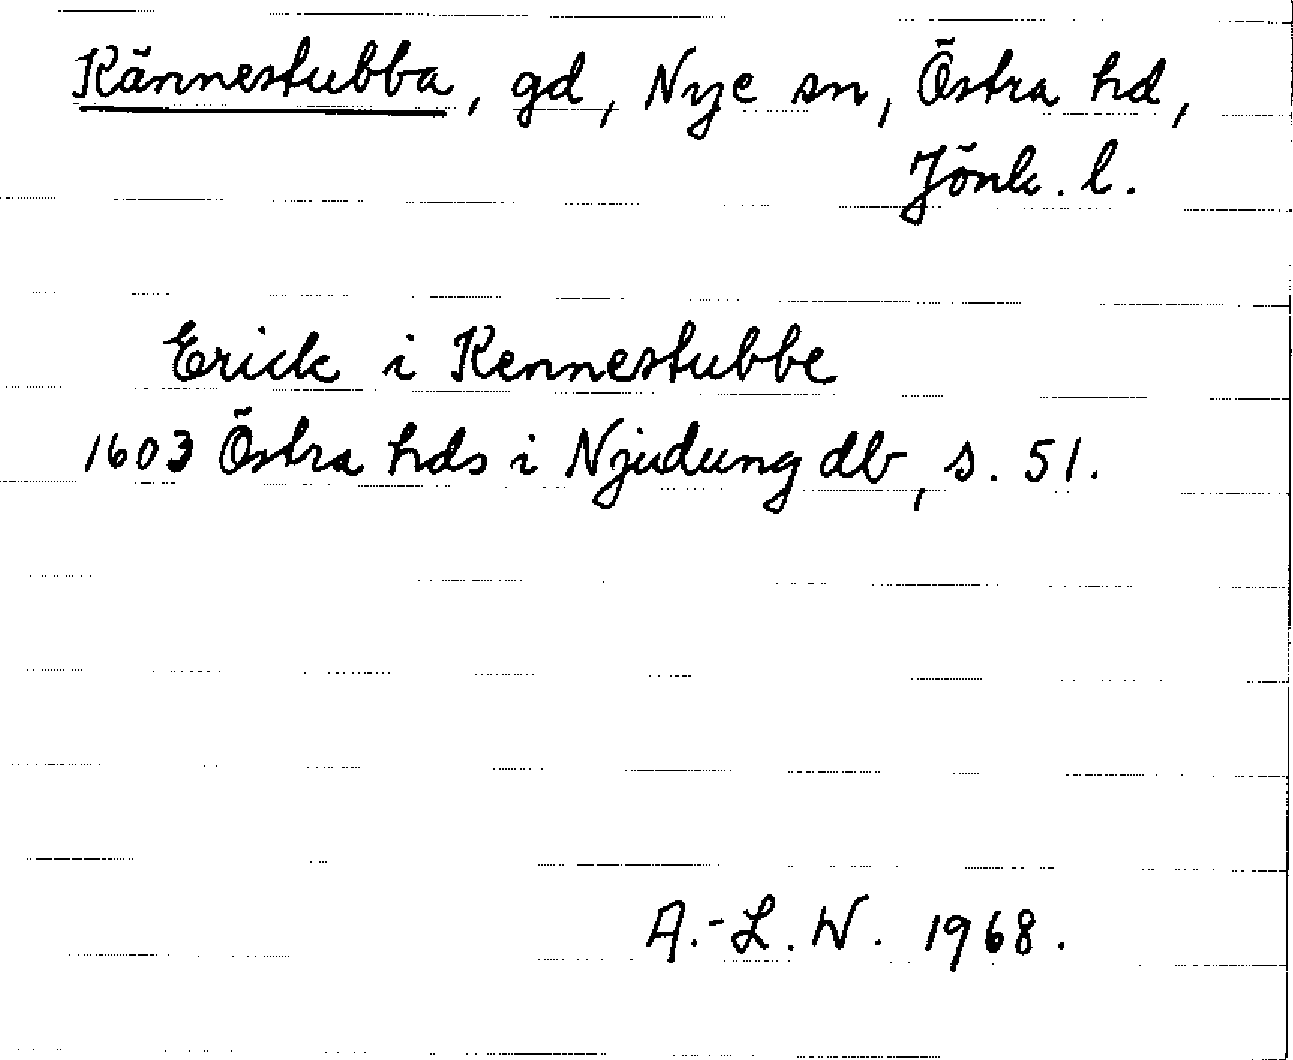 Kännestubba, gd, Nye sn, Östra hd,
Jönk. l.
Erick i Kennestubbe
1603 Östra hds i Njudung db, s. 51.
A.-L. W. 1968.